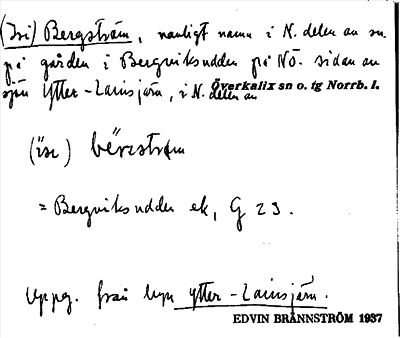 (Isi) Bergström, vanligt namn i N. delen av sn.
på gården i Bergviksudden på NÖ. sidan av
sjön Ytter-Lainsjärn, i N. delen av
Överkalix sn o. tg Norrb. l.
(ise) bäreström
= Bergviksudden ek, G 23.
Uppg. från byn Ytter-Lainsjärn.
EDVIN BRÄNNSTRÖM 1937